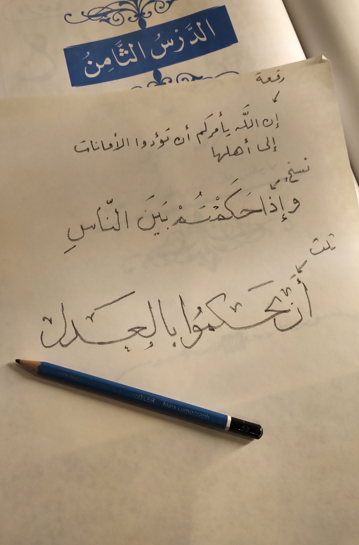 الدَّرْسُ الثَّامِنُ
رقعة
إن الله يأمركم أن تؤدوا الأمانات
إلى أهلها
نسخ
وَإِذَا حَكَمْتُمْ بَيْنَ النَّاسِ
ثلث
أَنْ تَحْكُمُوا بِالعَدل